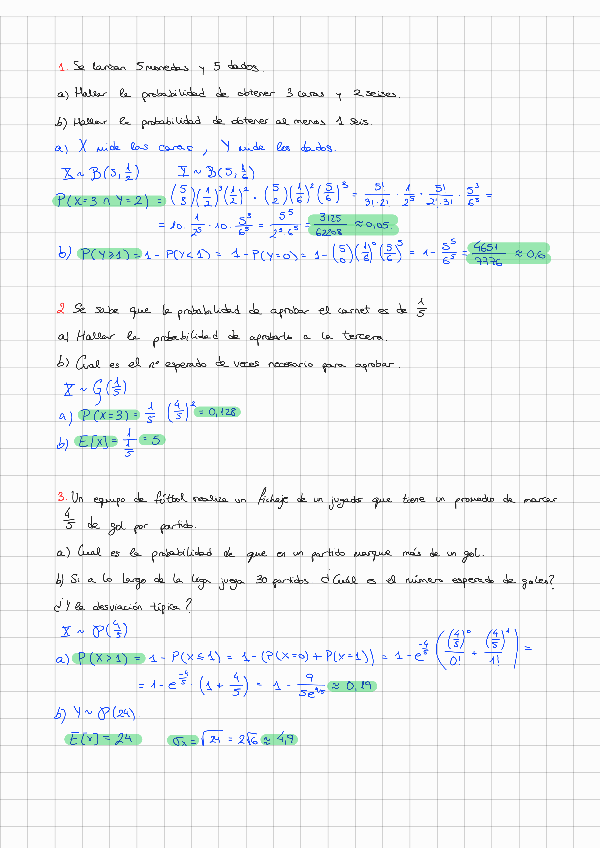 1. Se lanzan 5 monedas y 5 dados.
a) Hallar la probabilidad de obtener 3 caras y 2 seises.
b) Hallar la probabilidad de obtener al menos 1 seis.
a) X mide las caras, Y mide los dados.
X ~ B(5, 1/2) Y ~ B(5, 1/6)
P(X=3 ∩ Y=2) = (5 3)(1/2)^3(1/2)^2 · (5 2)(1/6)^2(5/6)^3 = 5!/(3!·2!) · 1/2^5 · 5!/(2!·3!) · 5^3/6^5 =
= 10 · 1/2^5 · 10 · 5^3/6^5 = 5^5/(2^3 6^5) = 3125/62208 ≈ 0,05
b) P(Y≥1) = 1 - P(Y<1) = 1 - P(Y=0) = 1 - (5 0)(1/6)^0(5/6)^5 = 1 - 5^5/6^5 = 4651/7776 ≈ 0,6
2 Se sabe que la probabilidad de aprobar el carnet es de 1/5
a) Hallar la probabilidad de aprobarlo a la tercera.
b) Cual es el nº esperado de veces necesario para aprobar.
X ~ G(1/5)
a) P(X=3) = 1/5 (4/5)^2 = 0,128
b) E[X] = 1/(1/5) = 5
3. Un equipo de fútbol realiza un fichaje de un jugador que tiene un promedio de marcar
4/5 de gol por partido.
a) Cual es la probabilidad de que en un partido marque más de un gol.
b) Si a lo largo de la liga juega 30 partidos ¿Cuál es el número esperado de goles?
¿Y la desviación típica?
X ~ P(4/5)
a) P(X>1) = 1 - P(X≤1) = 1 - (P(X=0) + P(X=1)) = 1 - e^(-4/5) ((4/5)^0/0! + (4/5)^1/1!) =
= 1 - e^(-4/5) · (1 + 4/5) = 1 - 9/(5e^(4/5)) ≈ 0,19
b) Y ~ P(24)
E[Y] = 24 σ = √24 = 2√6 ≈ 4,9